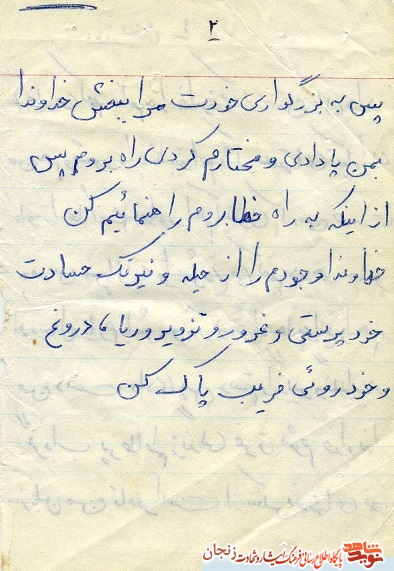 ۲
پس به بزرگواری خودت مرا ببخش خداوندا
بمن پا دادی و مختارم کردی راه بروم پس
از اینکه به راه خطا بروم راهنمائیم کن
خداوندا وجودم را از حیله و نیرنگ حسادت
خود پرستی و غرور و تزویر و ریا، دروغ
و خود روئی فریب پاک کن
نوید شاهد
پایگاه اطلاع رسانی فرهنگ ایثار و شهادت زنجان